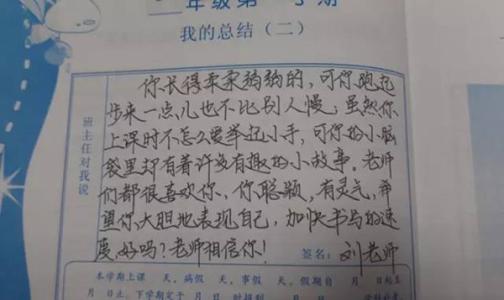 年级第一学期
我的总结（二）
班主任对我说
你长得柔柔弱弱的，可你跑起
步来一点儿也不比别人慢；虽然你
上课时不怎么爱举起小手，可你的小脑
袋里却有着许多有趣的小故事。老师
们都很喜欢你，你聪颖，有灵气，希
望你大胆地表现自己，加快书写的速
度，好吗？老师相信你！
签名：刘老师
本学期上课 天，病假 天，事假 天，假期自 月 日起至
月 日止，下学期定于 月 日